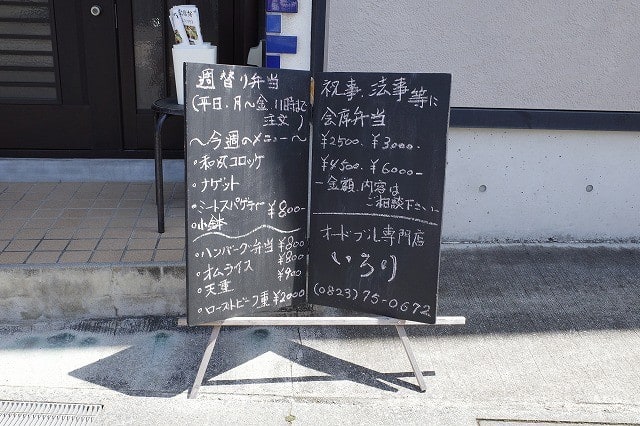 週替り弁当
(平日.月〜金 11時まで
注文)
〜今週のメニュー〜
・和風コロッケ
・ナゲット
・ミートスパゲティー ¥800-
・小鉢
・ハンバーグ弁当 ¥800
・オムライス ¥800
・天重 ¥900
・ローストビーフ重 ¥2000
祝事.法事等に
会席弁当
¥2500. ¥3000-
¥4500. ¥6000-
-金額.内容は
ご相談下さい-
オードブル専門店
いろり
(0823)75-0672